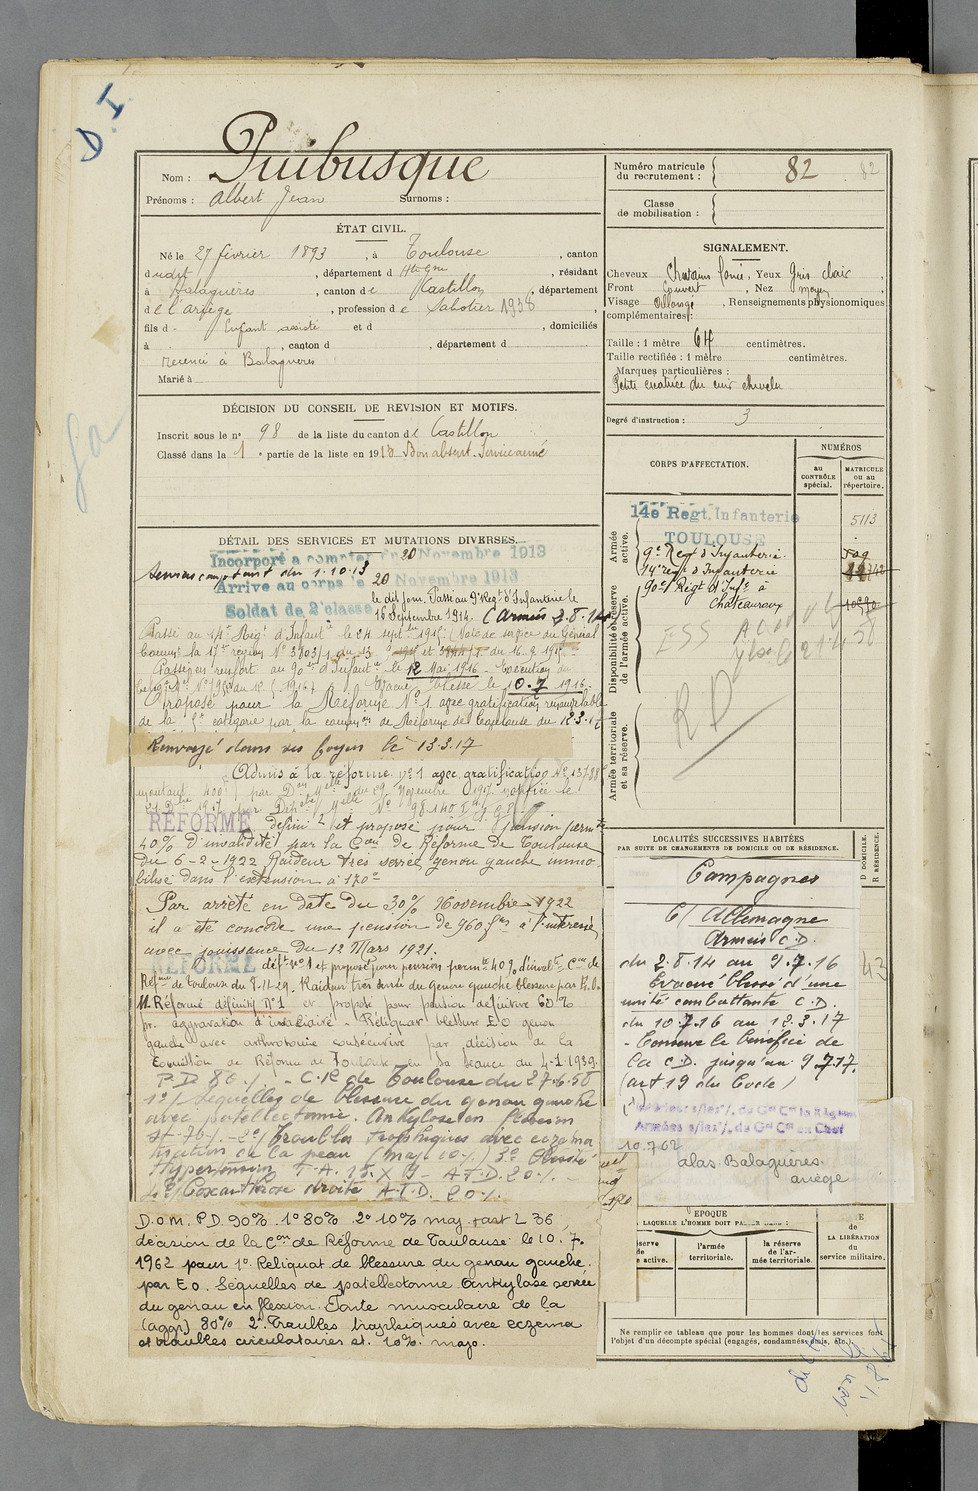 D.I
Nom : Puibusque
Prénoms : Albert Jean Surnoms :
ÉTAT CIVIL.
Né le 27 février 1893, à Toulouse, canton
dudit, département d Hte Gne, résidant
à Balaguères, canton de Castillon, département
de l'Ariège, profession de Sabotier 1938
fils d- Enfant assisté et d , domiciliés
à , canton d , département d
recensé à Balaguères
Marié à
DÉCISION DU CONSEIL DE REVISION ET MOTIFS.
Inscrit sous le n° 98 de la liste du canton de Castillon
Classé dans la 1e partie de la liste en 1913 Bon absent. Service armé
DÉTAIL DES SERVICES ET MUTATIONS DIVERSES.
Incorporé a compter du 20 Novembre 1913
Services comptant du 1.10.13
Arrivé au corps le 20 Novembre 1913
Soldat de 2e classe le dit jour. Passé au 9e Régt d'Infanterie le
16 Septembre 1914. (Armées 2.8.14)
Passé au 14e Régt d'Infante le 24 septbre 1915 (Note de service du Général
Commt la 17e région N° 3803/1 du 13 et du 16.9.1915
Passé en renfort au 90e d'Infante le 12 Mai 1916 - Exécution du
Évacué blessé le 10.7.1916.
Proposé pour la Réforme N° 1 avec gratification renouvelable
de la catégorie par la common de Réforme de Toulouse du 12.3.17
Renvoyé dans ses foyers le 13.3.17
Admis à la réforme n° 1 avec gratification N° 13788
montant 400f par Don Mlle du 29 Novembre 1917 notifiée le
RÉFORMÉ définif et proposé pour pension permte
40% d'invalidité par la Con de Réforme de Toulouse
du 6-2-1922 Raideur très serrée genou gauche immo-
bilisé dans l'extension à 170°
Par arrêté en date du 30 Novembre 1922
il a été concédé une pension de 960 frs à l'intéressé
avec jouissance du 12 Mars 1921.
RÉFORMÉ déft n° 1 et proposé pour pension permte 40% d'invalté Con de
Réfme de Toulouse du 9.11.29. Raideur très serrée du Genou gauche blessure par E.O.
M. Réformé définitif n° 1 et proposé pour pension définitive 60%
pr. aggravation d'invalidité - Reliquat blessure E.O genou
gauche avec arthrotomie consécutive par décision de la
Commission de Réforme de Toulouse en sa séance du 4-1-1939.
P.D 86% - C.R de Toulouse du 27.6.58
1°/ Séquelles de blessure du genou gauche
avec patellectomie. Ankylose en flexion
2°/ Troubles trophiques avec eczéma
tisation de la peau (maj 10%) 3° Obésité
Hypertension T.A. 15 X 9 - A.T.D. 20% -
4°/ Coxarthrose droite A.T.D. 20%.
D.O.M. P.D. 90%. 1° 80% 2° 10% maj. + art L 36,
décision de la Con de Réforme de Toulouse le 10.7.
1962 pour 1° Reliquat de blessure du genou gauche.
par E.O. Séquelles de patellectomie ankylose serrée
du genou en flexion. Fonte musculaire de la
(aggr) 80% 2° Troubles trophiques avec eczéma
et troubles circulatoires et. 10% majo.
Numéro matricule
du recrutement : 82 82
Classe
de mobilisation :
SIGNALEMENT.
Cheveux Chatains foncé, Yeux Gris clair,
Front Couvert, Nez moyen
Visage Allongé, Renseignements physionomiques
complémentaires :
Taille : 1 mètre 64 centimètres.
Taille rectifiée : 1 mètre centimètres.
Marques particulières :
Petite cicatrice du cuir chevelu
Degré d'instruction : 3
CORPS D'AFFECTATION.
NUMÉROS
au CONTRÔLE spécial.
MATRICULE ou au répertoire.
Armée active.
14e Regt. Infanterie 5113
TOULOUSE
9e Régt d'Infanterie
14e régt d'Infanterie
90e Régt d'Infie à
Chateauroux
Disponibilité et réserve de l'armée active.
RD
Armée territoriale et sa réserve.
LOCALITÉS SUCCESSIVES HABITÉES
PAR SUITE DE CHANGEMENTS DE DOMICILE OU DE RÉSIDENCE.
D DOMICILE.
R RÉSIDENCE.
Campagnes
C/ Allemagne
Armées C.D.
du 2.8.14 au 9.7.16
Évacué blessé d'une
unité combattante C.D.
du 10.7.16 au 12.3.17
- Conserve le bénéfice de
la C.D. jusqu'au 9.7.17.
(art 19 du Code)
10.7.62
Balaguères.
ariège
43
EPOQUE
À LAQUELLE L'HOMME DOIT PASSER DANS :
l'armée territoriale.
la réserve de l'armée territoriale.
DATE de LA LIBÉRATION du service militaire.
Ne remplir ce tableau que pour les hommes dont les services font
l'objet d'un décompte spécial (engagés, condamnés, omis, etc.).